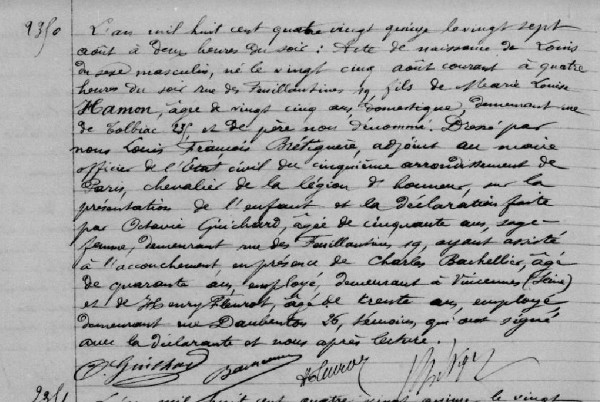 2350
L'an mil huit cent quatre vingt quinze le vingt sept
août à deux heures du soir : Acte de naissance de Louis
du sexe masculin, né le vingt cinq août courant à quatre
heures du soir rue des Feuillantines 19, fils de Marie Louise
Hamon, âgée de vingt cinq ans, domestique, demeurant rue
de Tolbiac et de père non dénommé. Dressé par
nous Louis François Brétignère, adjoint au maire
officier de l'Etat civil du cinquième arrondissement de
Paris, chevalier de la légion d'honneur, sur la
présentation de l'enfant et la déclaration faite
par Octavie Guichard, âgée de cinquante ans, sage-
femme, demeurant rue des Feuillantines, 19, ayant assisté
à l'accouchement, en présence de Charles Bachellier, âgé
de quarante ans, employé, demeurant à Vincennes (Seine)
et de Henry Fleurot, âgé de trente ans, employé
demeurant rue Daubenton 26, témoins, qui ont signé
avec la déclarante et nous après lecture.
O. Guichard Fleurot
2351 L'an mil huit cent quatre vingt quinze le vingt